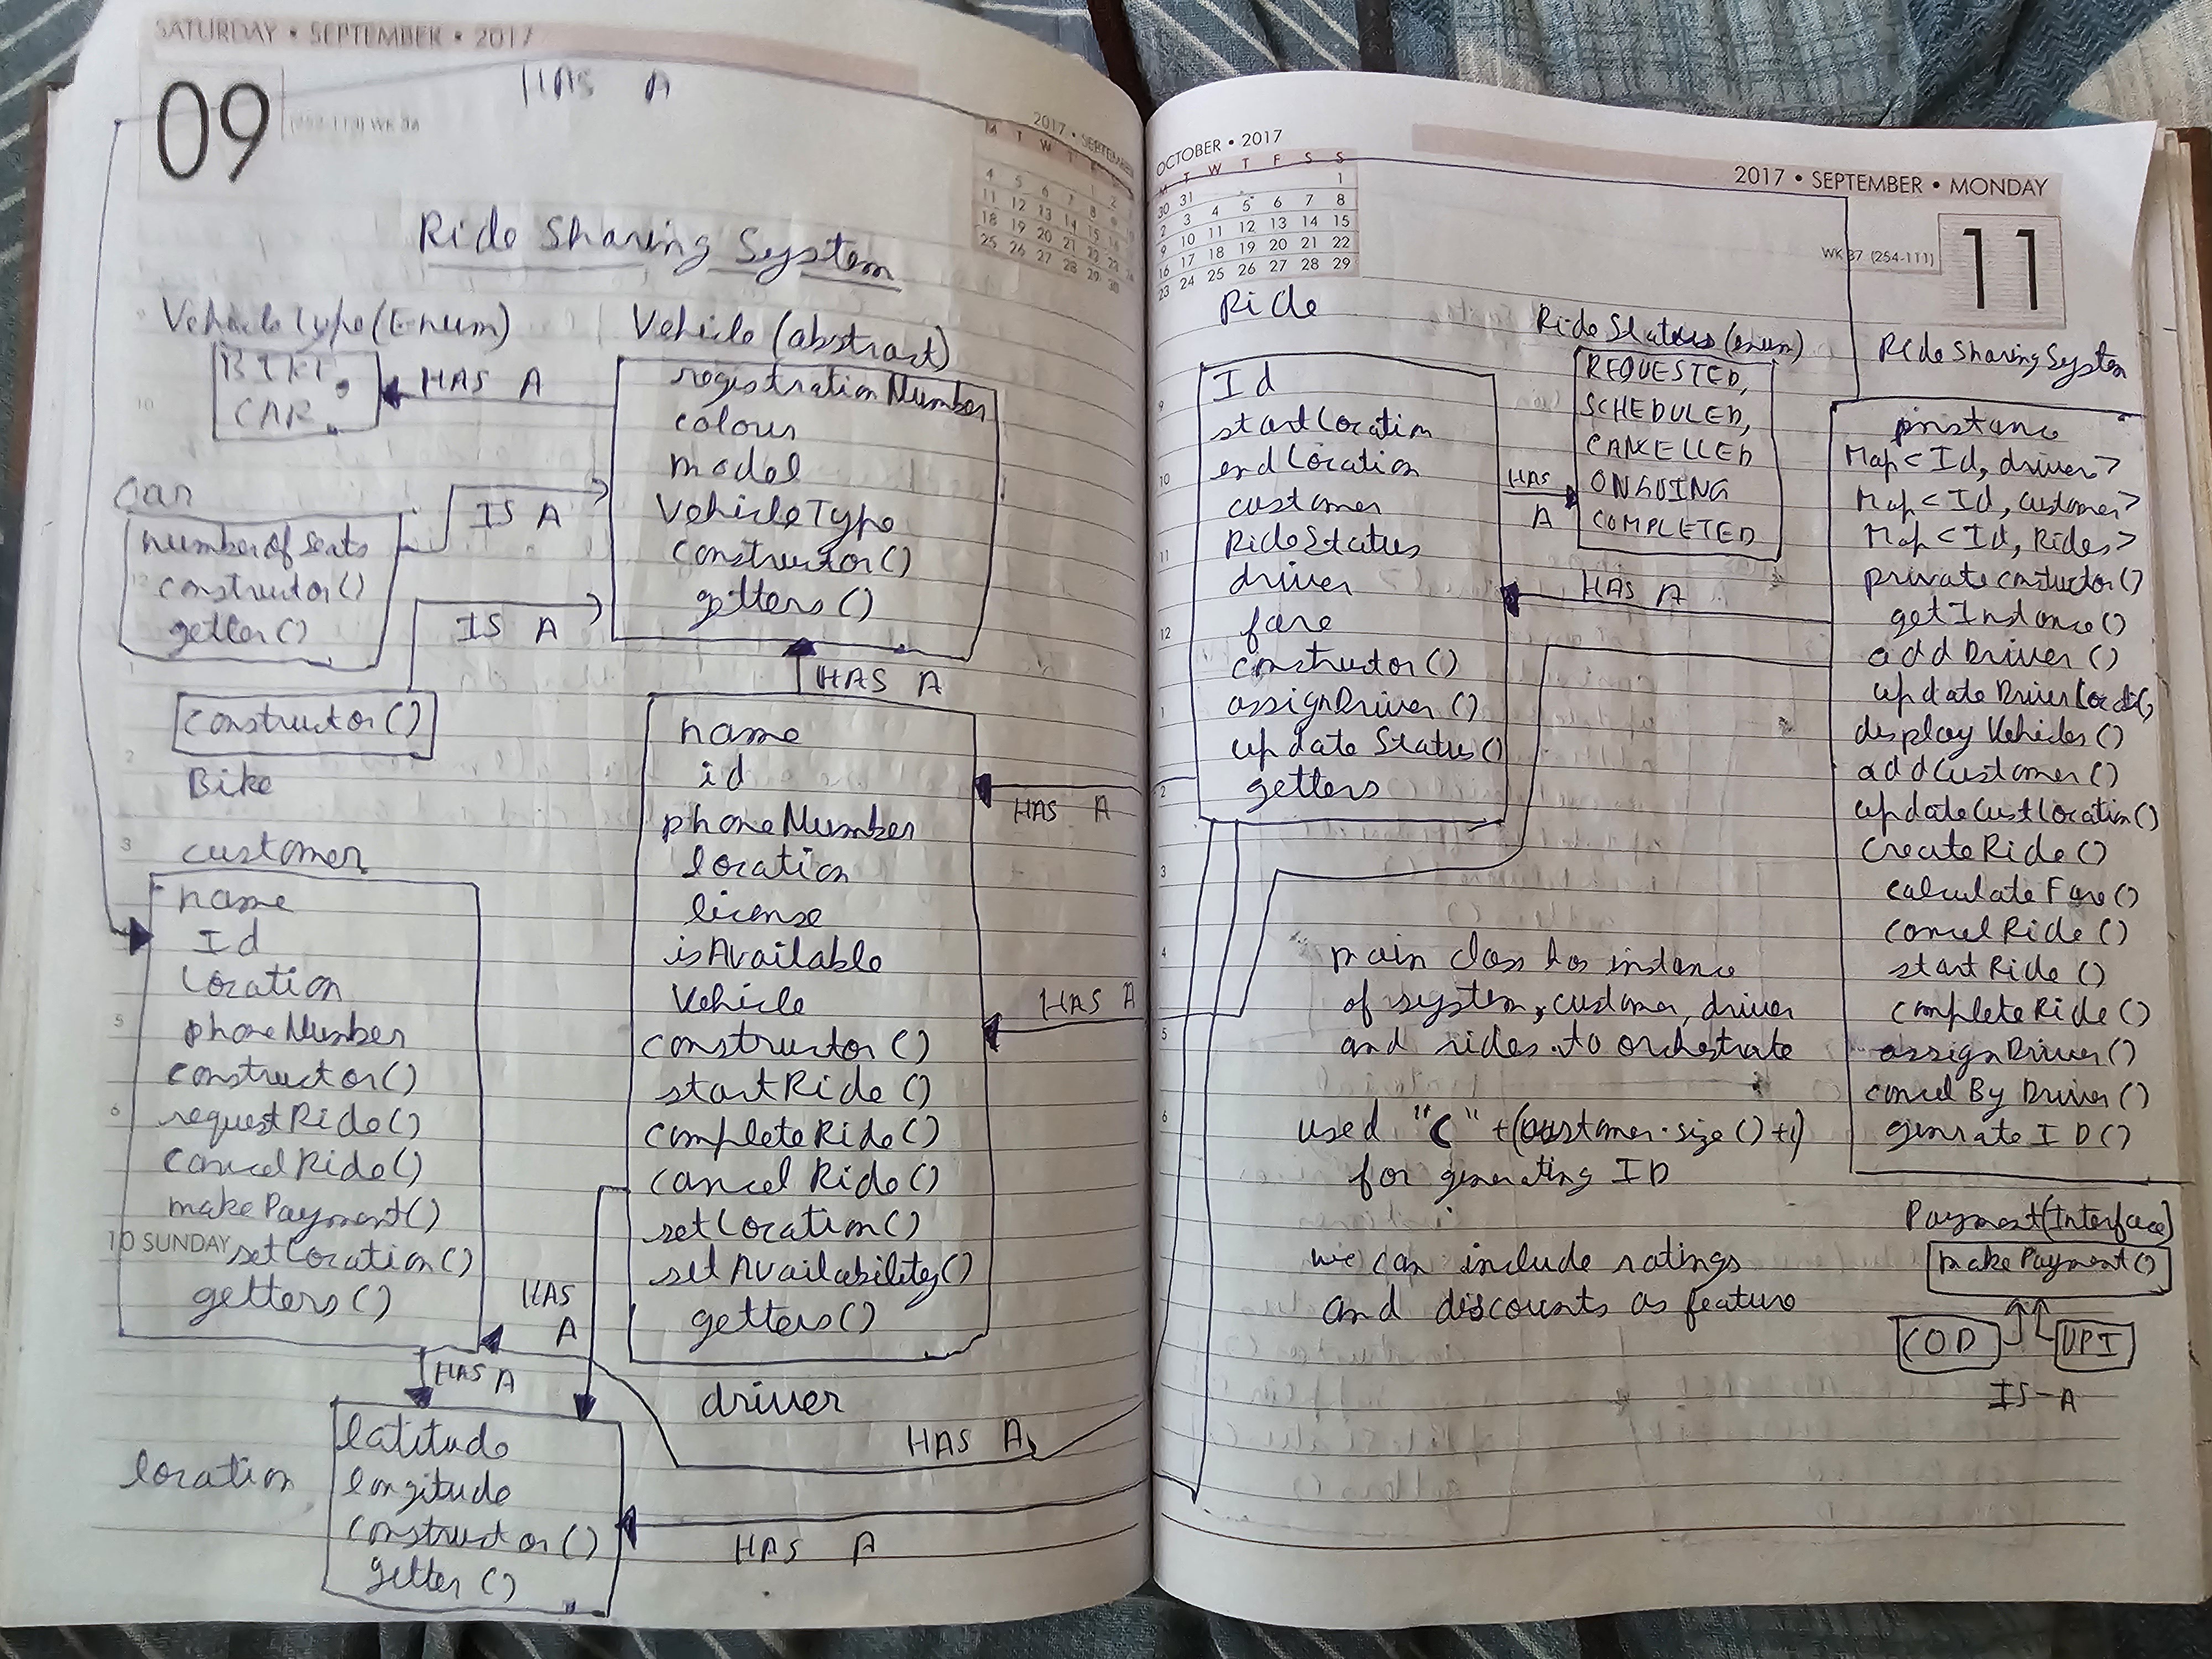 SATURDAY • SEPTEMBER • 2017
09
HAS A
2017 • SEPTEMBER
M T W T
4 5 6 7 8
11 12 13 14 15 16
18 19 20 21 22 23
25 26 27 28 29 30
Ride Sharing System
VehicleType (Enum)
BIKE,
CAR
HAS A
Vehicle (abstract)
registrationNumber
colour
model
VehicleType
constructor()
getters()
Car
numberofseats
constructor()
getter()
IS A
IS A
constructor()
Bike
HAS A
customer
name
Id
Location
phoneNumber
constructor()
requestRide()
cancelRide()
makePayment()
10 SUNDAY
setLocation()
getters()
name
id
phoneNumber
location
license
isAvailable
Vehicle
constructor()
startRide()
completeRide()
cancelRide()
setLocation()
setAvailability()
getters()
driver
HAS A
HAS A
HAS A
HAS A
HAS A
HAS A
location
latitude
longitude
constructor()
getter()
OCTOBER • 2017
M T W T F S S
30 31 1
2 3 4 5 6 7 8
9 10 11 12 13 14 15
16 17 18 19 20 21 22
23 24 25 26 27 28 29
2017 • SEPTEMBER • MONDAY
WK 37 (254-111)
11
Ride
Id
startLocation
endLocation
customer
RideStatus
driver
fare
constructor()
assignDriver()
updateStatus()
getters
RideStatus (enum)
REQUESTED,
SCHEDULED,
CANCELLED
ONGOING
COMPLETED
HAS A
HAS A
RideSharingSystem
Map<Id, driver>
Map<Id, customer>
Map<Id, Rides>
private constuctor()
getInstance()
addDriver()
displayVehicles()
addCustomer()
updateCustLocation()
createRide()
calculateFare()
cancelRide()
startRide()
completeRide()
assignDriver()
cancelByDriver()
genrateID()
main class has instance
of system, customer, driver
and rides to orchestrate
used "C" +(customer.size()+1)
for generating ID
we can include ratings
and discounts as feature
Payment(Interface)
makePayment()
COD
UPI
IS-A